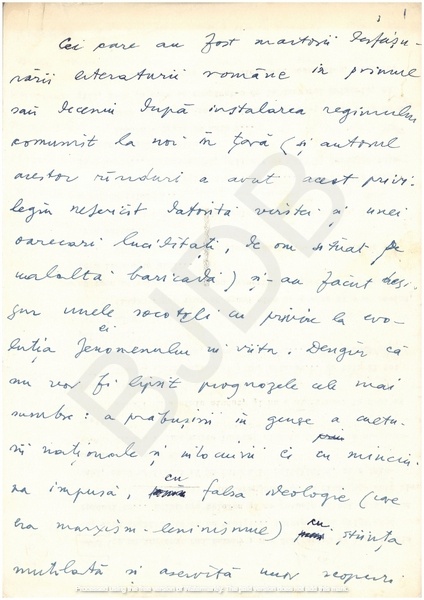 1
Cei care au fost martorii desfășu-
rării literaturii române în primul
său deceniu după instalarea regimului
comunist la noi în țară (și autorul
acestor rînduri a avut acest privi-
legiu nefericit datorită vîrstei și unei
oarecari lucidități, de om situat pe
cealaltă baricadă) și-au făcut desi-
gur unele socoteli cu privire la evo-
luția ei fenomenului în viitor. Desigur că
nu vor fi lipsit prognozele cele mai
sumbre: a prăbușirii în genere a cultu-
rii naționale și înlocuirii ei cu minciu-
na impusă, cu falsa ideologie (care
era marxism-leninismul) cu știința
mutilată și aservită unor scopuri
BJDB